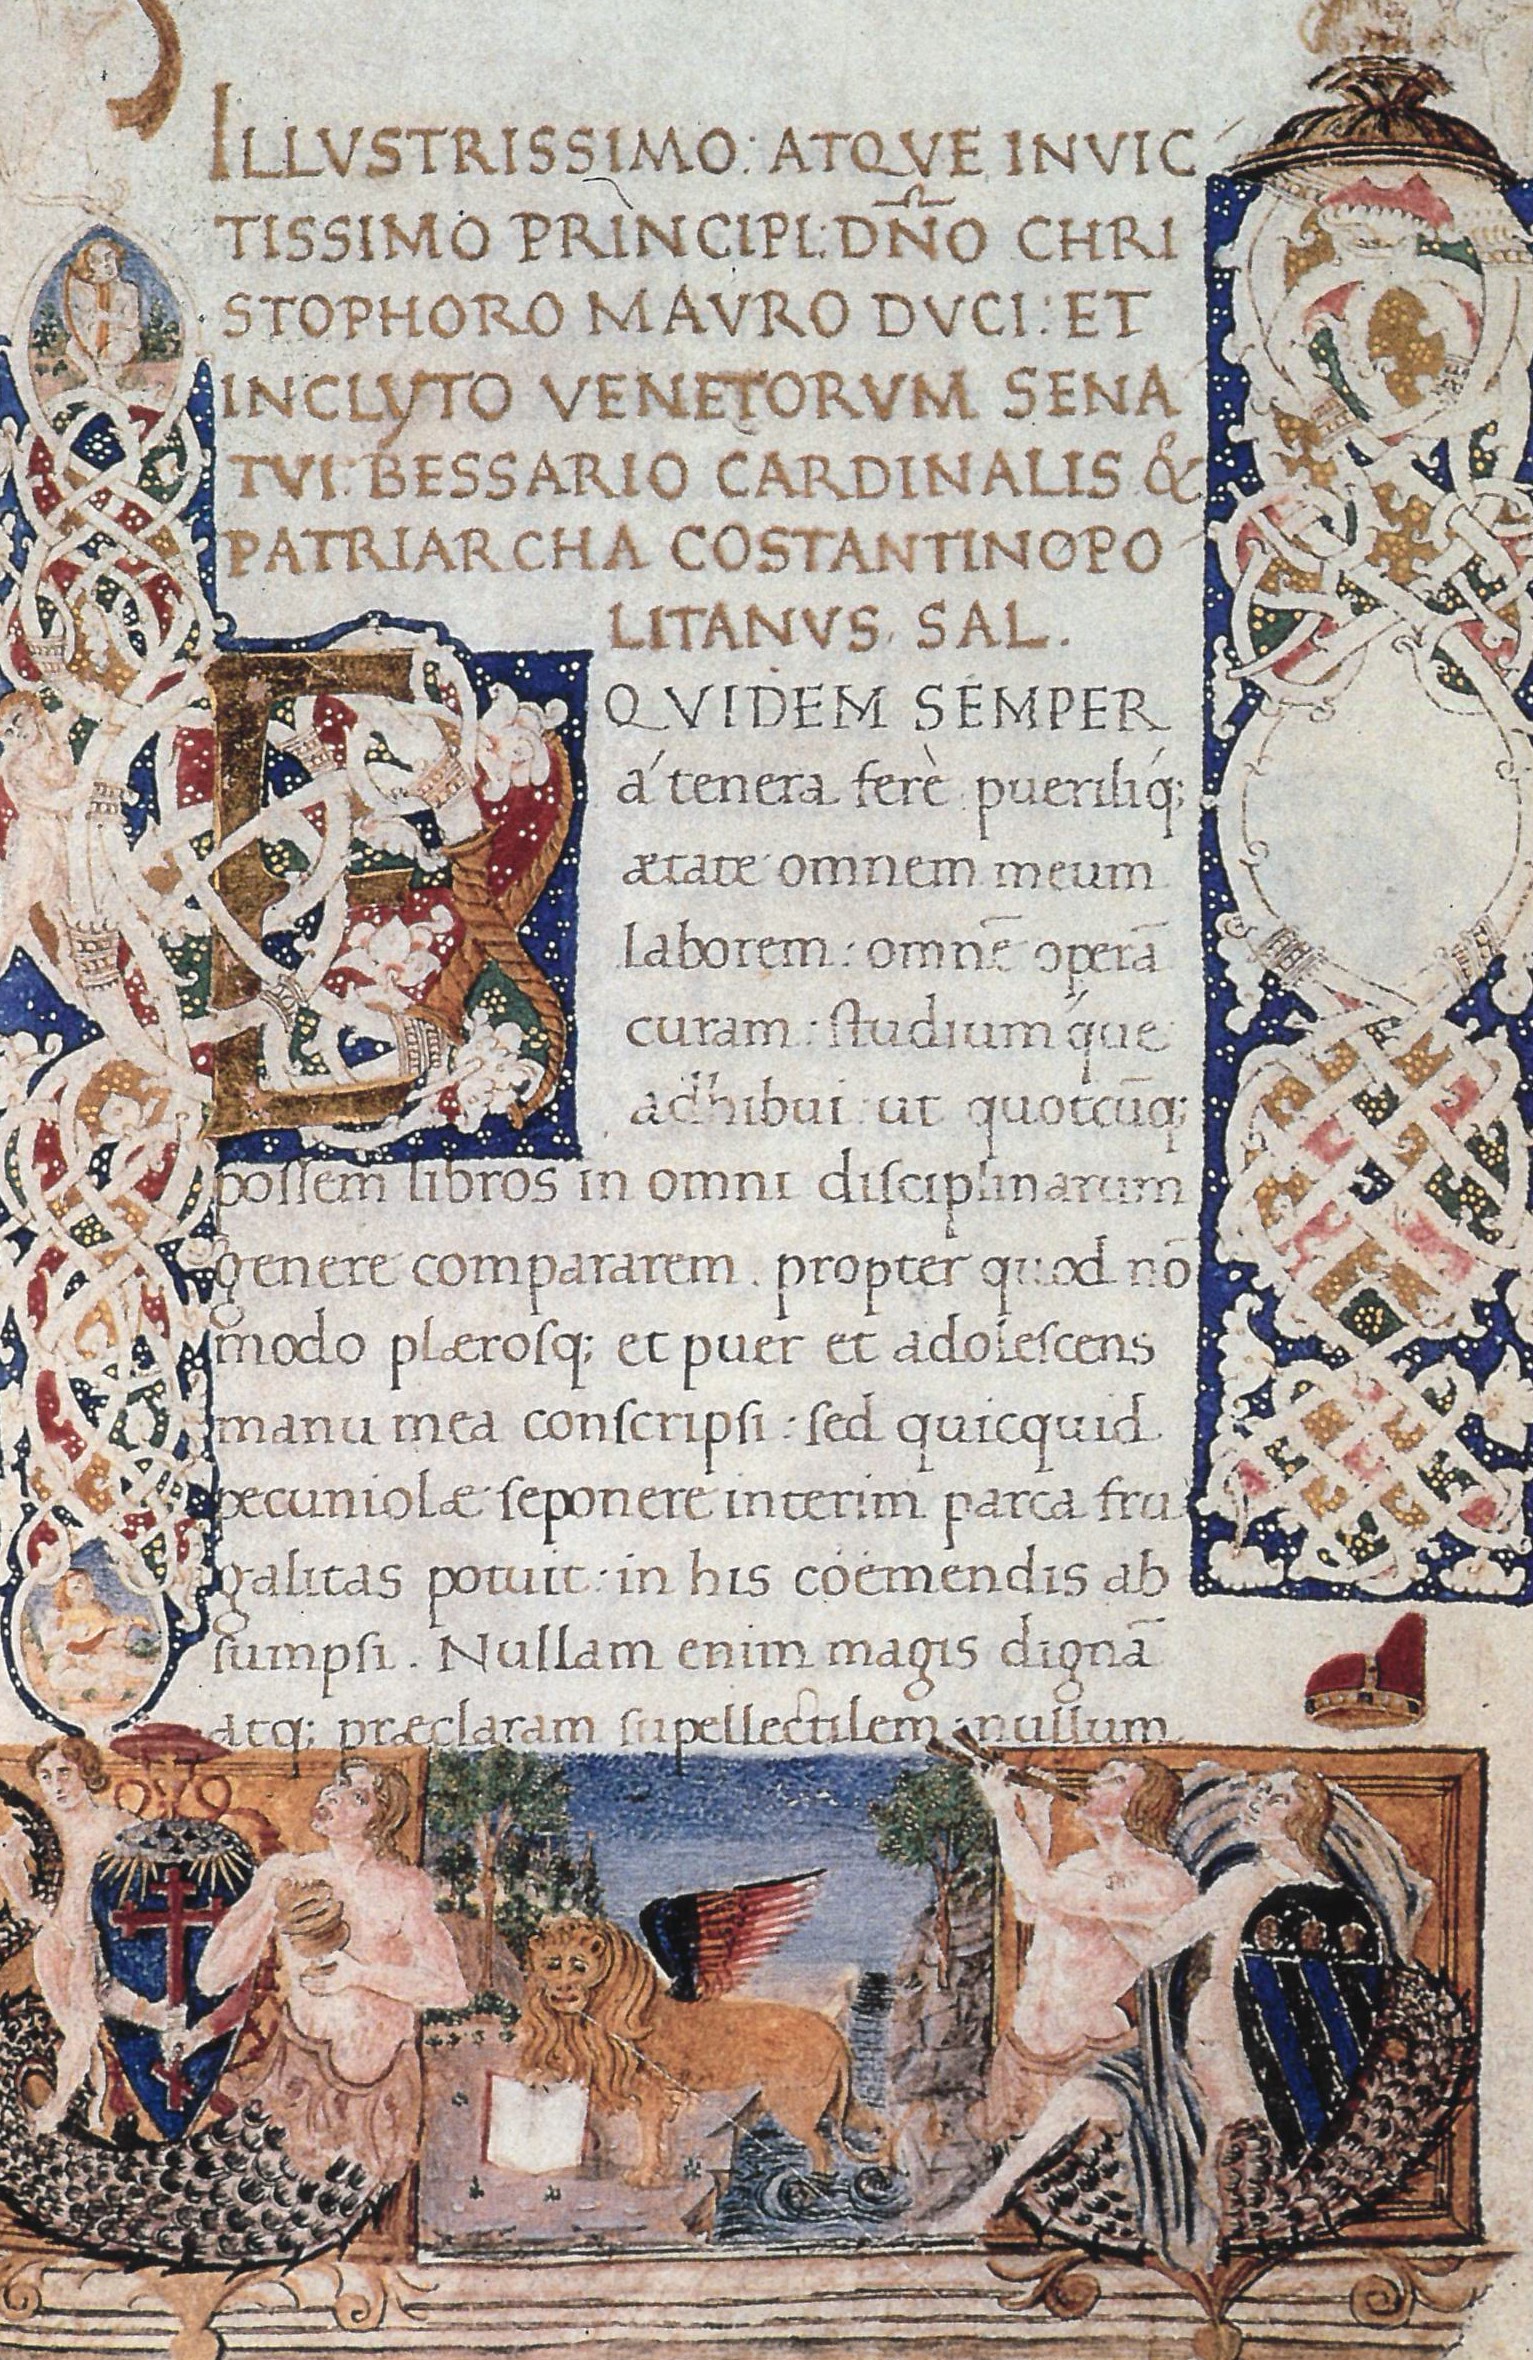 ILLVSTRISSIMO: ATQVE INVIC
TISSIMO PRINCIPI: DÑO CHRI
STOPHORO MAVRO DVCI: ET
INCLYTO VENETORVM SENA
TVI: BESSARIO CARDINALIS &
PATRIARCHA COSTANTINOPO
LITANVS. SAL.
EQVIDEM SEMPER
á tenera ferè puerilíq;
ætate omnem meum
laborem: omnē operā
curam: ſtudium'que
adhibui: ut quotcūq;
poſſem libros in omni diſciplinarum
genere compararem. propter quod nō
modo plæroſq; et puer et adoleſcens
manu mea conſcripſi: ſed quicquid
pecuniolæ ſeponere interim parca fru
galitas potuit: in his coëmendis ab
ſumpſi. Nullam enim magis dignā
atq; præclaram ſupellectilem: nullum